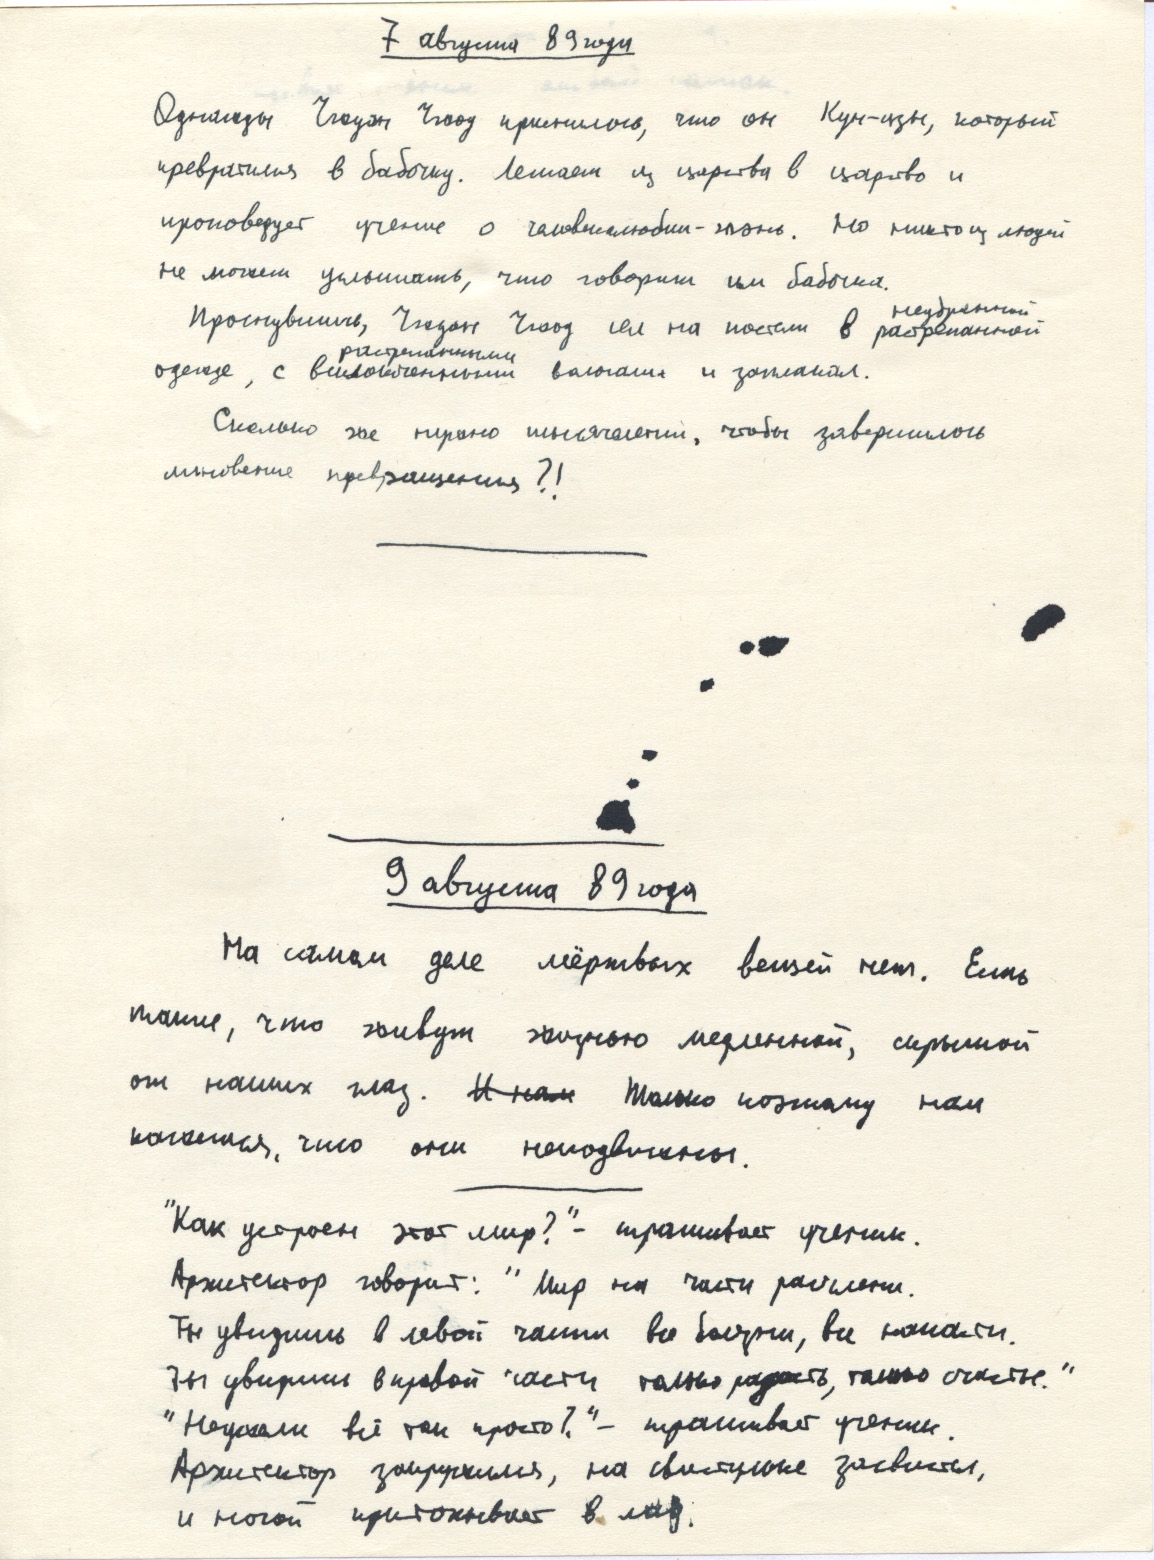 7 августа 89 года
Однажды Чжуан Чжоу приснилось, что он Кун-цзы, который
превратился в бабочку. Летает из царства в царство и
проповедует учение о человеколюбии-жэнь. Но никто из людей
не может услышать, что говорит им бабочка.
неубранной
Проснувшись, Чжуан Чжоу сел на постели в растрепанной
растрепанными
одежде, с всклокоченными волосами и заплакал.
Сколько же нужно тысячелетий, чтобы завершилось
мгновение превращения?!
9 августа 89 года
На самом деле мёртвых вещей нет. Есть
такие, что живут жизнью медленной, скрытой
от наших глаз. И нам Только поэтому нам
кажется, что они неподвижны.
"Как устроен этот мир?" – спрашивает ученик.
Архитектор говорит: "Мир на части расчлени.
Ты увидишь в левой части все болезни, все напасти.
Ты увидишь в правой части только радость, только счастье."
"Неужели всё так просто?" – спрашивает ученик.
Архитектор закружился, на свистульке засвистел,
и ногой притопывает в лад.